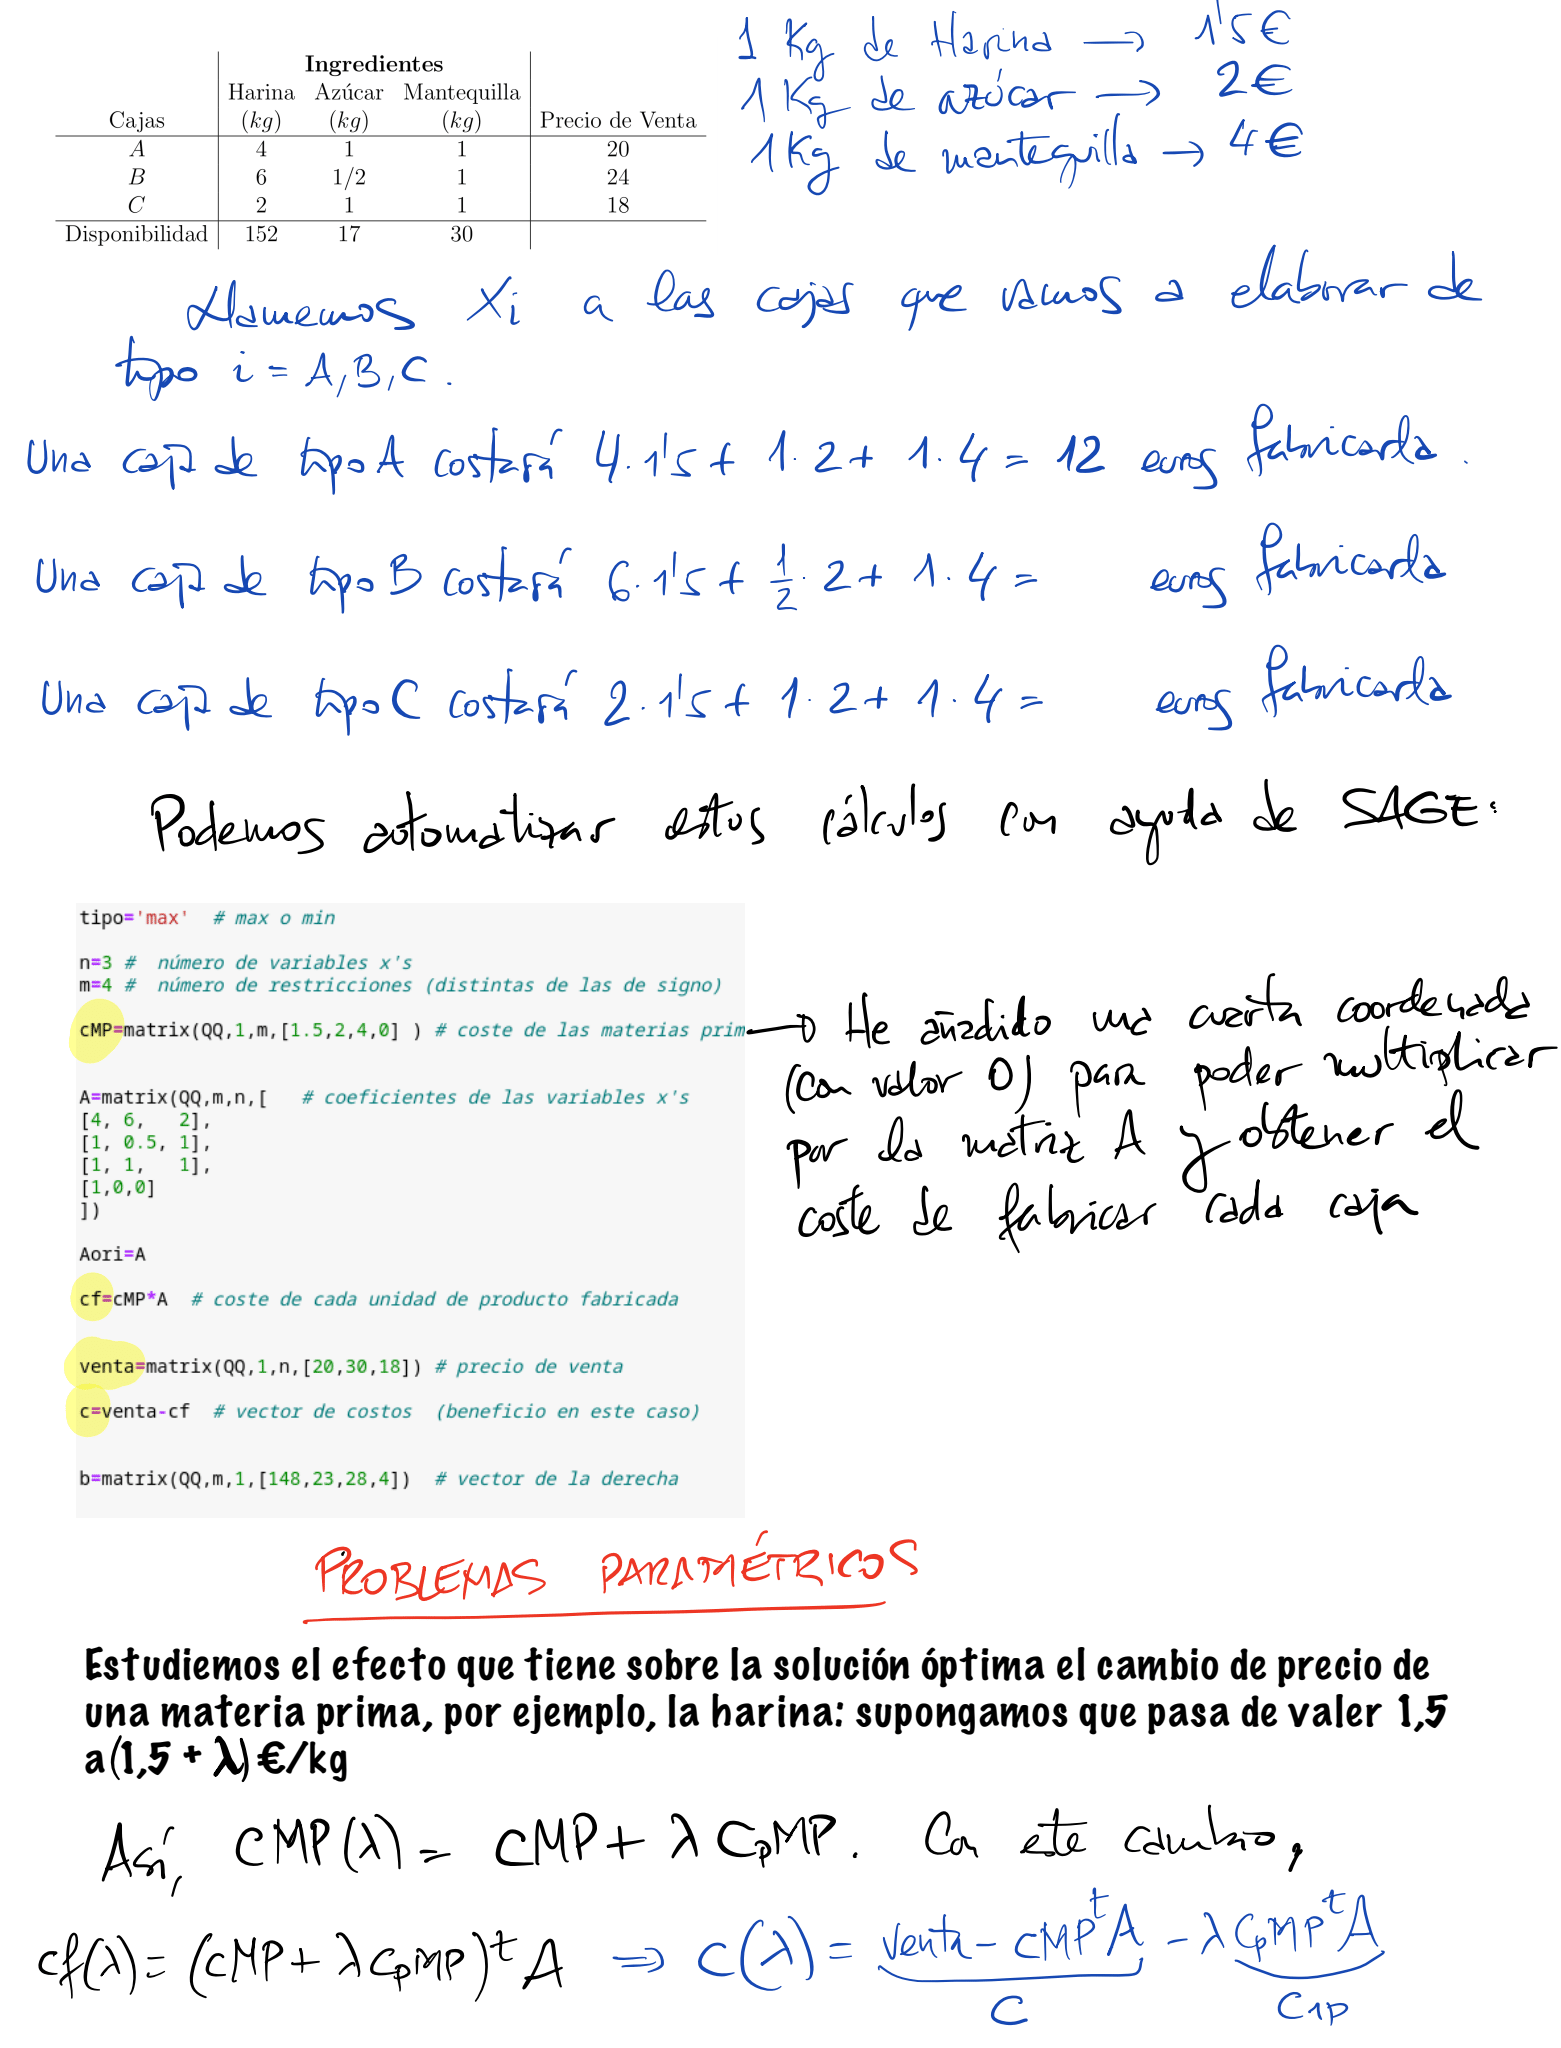 Ingredientes
Harina Azúcar Mantequilla
Cajas (kg) (kg) (kg) Precio de Venta
A 4 1 1 20
B 6 1/2 1 24
C 2 1 1 18
Disponibilidad 152 17 30
1 Kg de Harina → 1'5€
1 Kg de azúcar → 2€
1 Kg de mantequilla → 4€
Llamemos Xi a las cajas que vamos a elaborar de
tipo i = A, B, C.
Una caja de tipo A costará 4·1'5 + 1·2 + 1·4 = 12 euros fabricarla.
Una caja de tipo B costará 6·1'5 + 1/2·2 + 1·4 = euros fabricarla
Una caja de tipo C costará 2·1'5 + 1·2 + 1·4 = euros fabricarla
Podemos automatizar estos cálculos con ayuda de SAGE:
tipo='max' # max o min
n=3 # número de variables x's
m=4 # número de restricciones (distintas de las de signo)
cMP=matrix(QQ,1,m,[1.5,2,4,0] ) # coste de las materias prim
A=matrix(QQ,m,n,[ # coeficientes de las variables x's
[4, 6, 2],
[1, 0.5, 1],
[1, 1, 1],
[1,0,0]
])
Aori=A
cf=cMP*A # coste de cada unidad de producto fabricada
venta=matrix(QQ,1,n,[20,30,18]) # precio de venta
c=venta-cf # vector de costos (beneficio en este caso)
b=matrix(QQ,m,1,[148,23,28,4]) # vector de la derecha
→ He añadido una cuarta coordenada
(con valor 0) para poder multiplicar
por la matriz A y obtener el
coste de fabricar cada caja
PROBLEMAS PARAMÉTRICOS
Estudiemos el efecto que tiene sobre la solución óptima el cambio de precio de
una materia prima, por ejemplo, la harina: supongamos que pasa de valer 1,5
a (1,5 + λ) €/kg
Así, cMP(λ) = cMP + λ CpMP. Con este cambio,
cf(λ) = (cMP + λ CpMP)^t A ⇒ c(λ) = venta - cMP^t A - λ CpMP^t A
C C1P